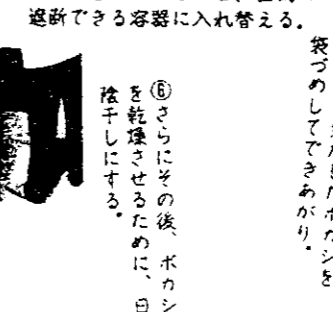 遮断できる容器に入れ替える。
ボカシを
袋づめしてできあがり。
⑥さらにその後、ボカシ
を乾燥させるために、日
陰干しにする。